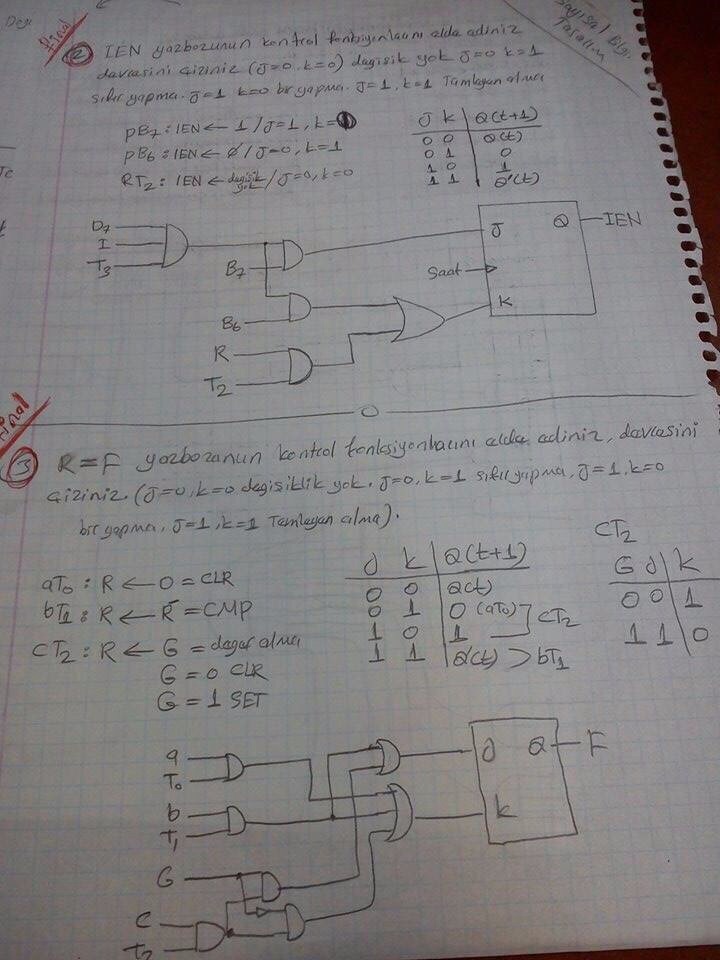 final
Sayısal Bilg.
Tasarım
2 IEN yazbozunun kontrol fonksiyonlarını elde ediniz
davresini çiziniz (J=0, k=0) degisik yok J=0 k=1
sıfır yapma. J=1 k=0 bir yapma. J=1, k=1 Tamleyen alma
pB7 : IEN ← 1 / J=1, k=
pB6 : IEN ← 0 / J=0, k=1
RT2 : IEN ← degisik yok / J=0, k=0
J k Q(t+1)
0 0 Q(t)
0 1 0
1 0 1
1 1 Q'(t)
D7
I
T3
B7
B6
R
T2
J Q IEN
Saat
k
final
3 R=F yazbozunun kontrol fonksiyonlarını elde ediniz, davresini
çiziniz. (J=0, k=0 degisiklik yok. J=0, k=1 sıfır yapma, J=1, k=0
bir yapma, J=1, k=1 Tamleyen alma).
aT0 : R ← 0 = CLR
bT1 : R ← R̅ = CMP
cT2 : R ← G = deger alma
G = 0 CLR
G = 1 SET
J k Q(t+1)
0 0 Q(t)
0 1 0 (aT0)
1 0 1
1 1 Q'(t) > bT1
cT2
CT2
G J k
0 0 1
1 1 0
a
T0
b
T1
G
C
T2
J Q F
k